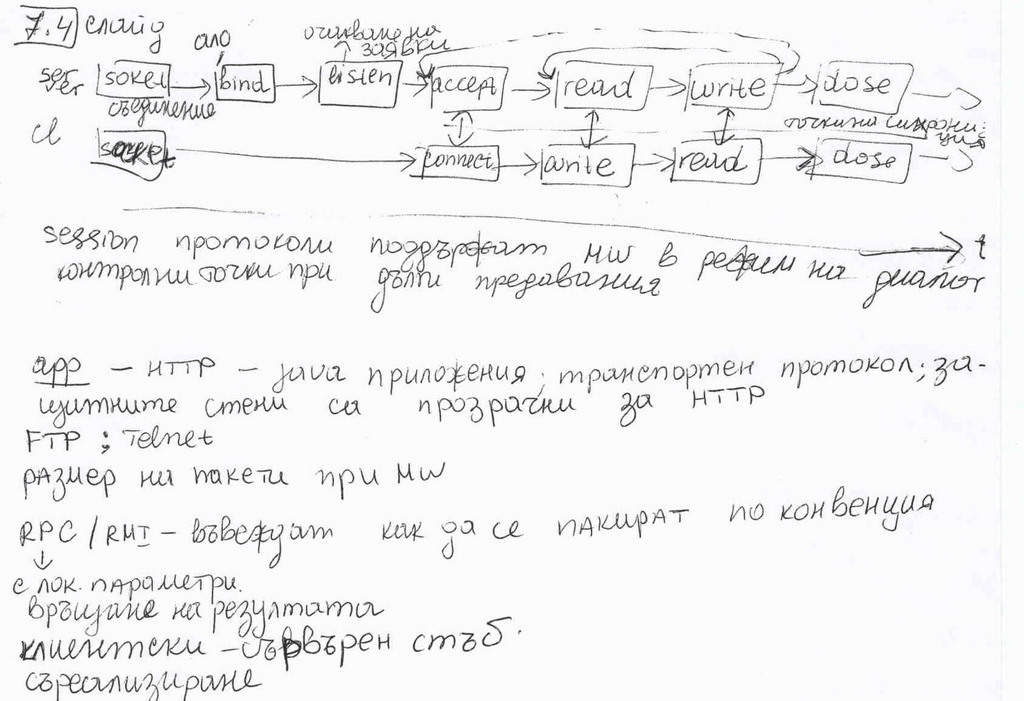 7.4 слайд
ало
очакване на
заявки
ser
ver
soket
bind
listen
accept
read
write
close
съединение
точки на синхрони-
ция
cl
socket
connect
write
read
close
t
session протоколи поддържат MW в режим на диалог
контролни точки при дълги предавания
app – HTTP – java приложения; транспортен протокол; за-
щитните стени са прозрачни за HTTP
FTP ; Telnet
размер на пакети при MW
RPC / RMI – въвеждат как да се пакират по конвенция
с лок. параметри.
връщане на резултата
клиентски – сървърен стъб.
съреализиране